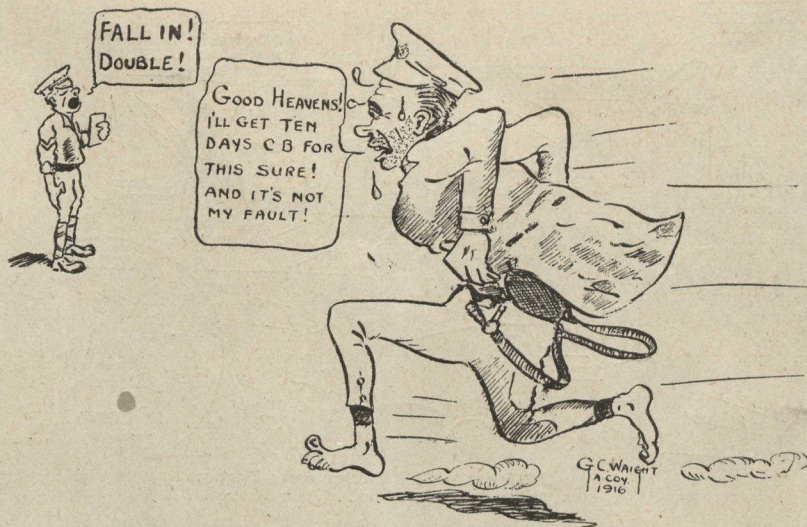 FALL IN!
DOUBLE!
GOOD HEAVENS!
I'LL GET TEN
DAYS C B FOR
THIS SURE!
AND IT'S NOT
MY FAULT!
G.C. WAIGHT
A COY.
1916